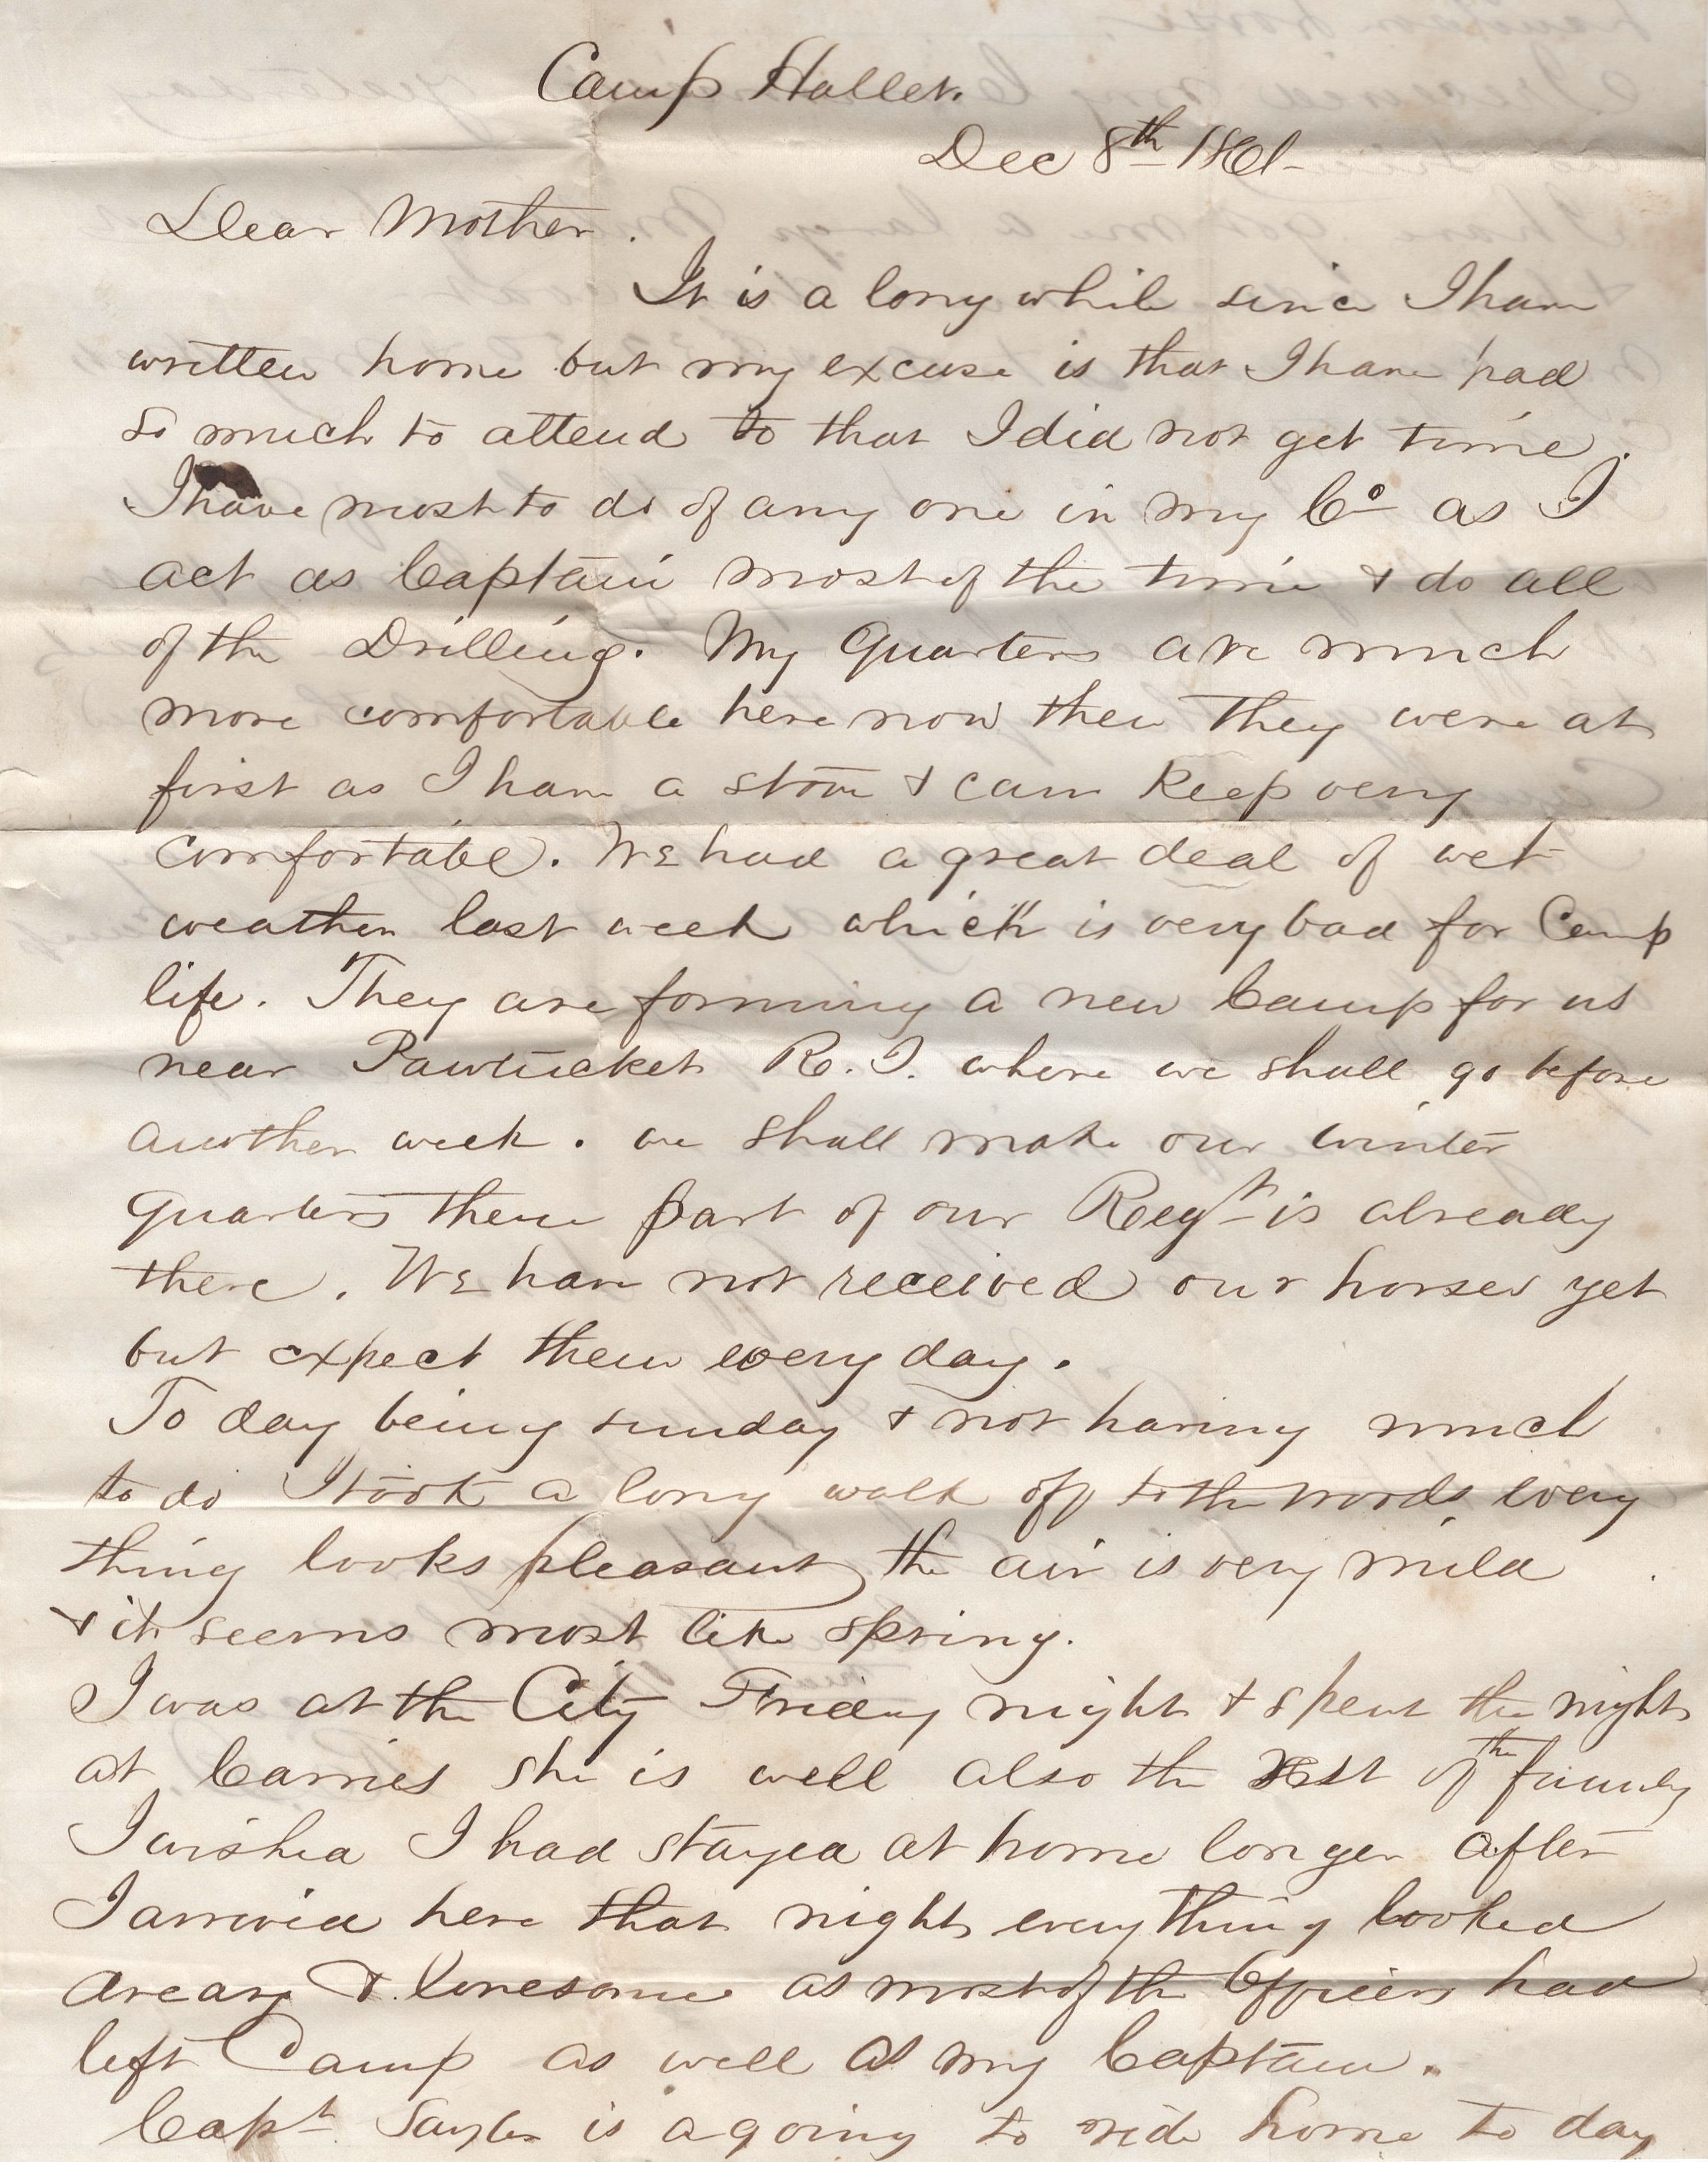 Camp Hallet.
Dec 8th 1861-
Dear Mother.
It is a long while since I have
written home but my excuse is that I have had
so much to attend to that I did not get time.
I have most to do of any one in my Co as I
act as Captain most of the time & do all
of the Drilling. My Quarters are much
more comfortable here now then they were at
first as I have a stove & can Keep very
comfortable. We had a great deal of wet
weather last week which is very bad for Camp
life. They are forming a new Camp for us
near Pawtucket R.I. where we shall go before
another week. we shall make our winter
quarters there part of our Regt is already
there. We have not received our horses yet
but expect them every day.
To day being sunday & not having much
to do I took a long walk off to the woods every
thing looks pleasant the air is very mild
& it seems most like spring.
I was at the City Friday night & spent the night
at Carries she is well also the rest of the family
I wished I had stayed at home longer after
I arrived here that night everything looked
dreary & lonesome as most of the Officers had
left Camp as well as my Captain.
Capt is a going to ride home to day